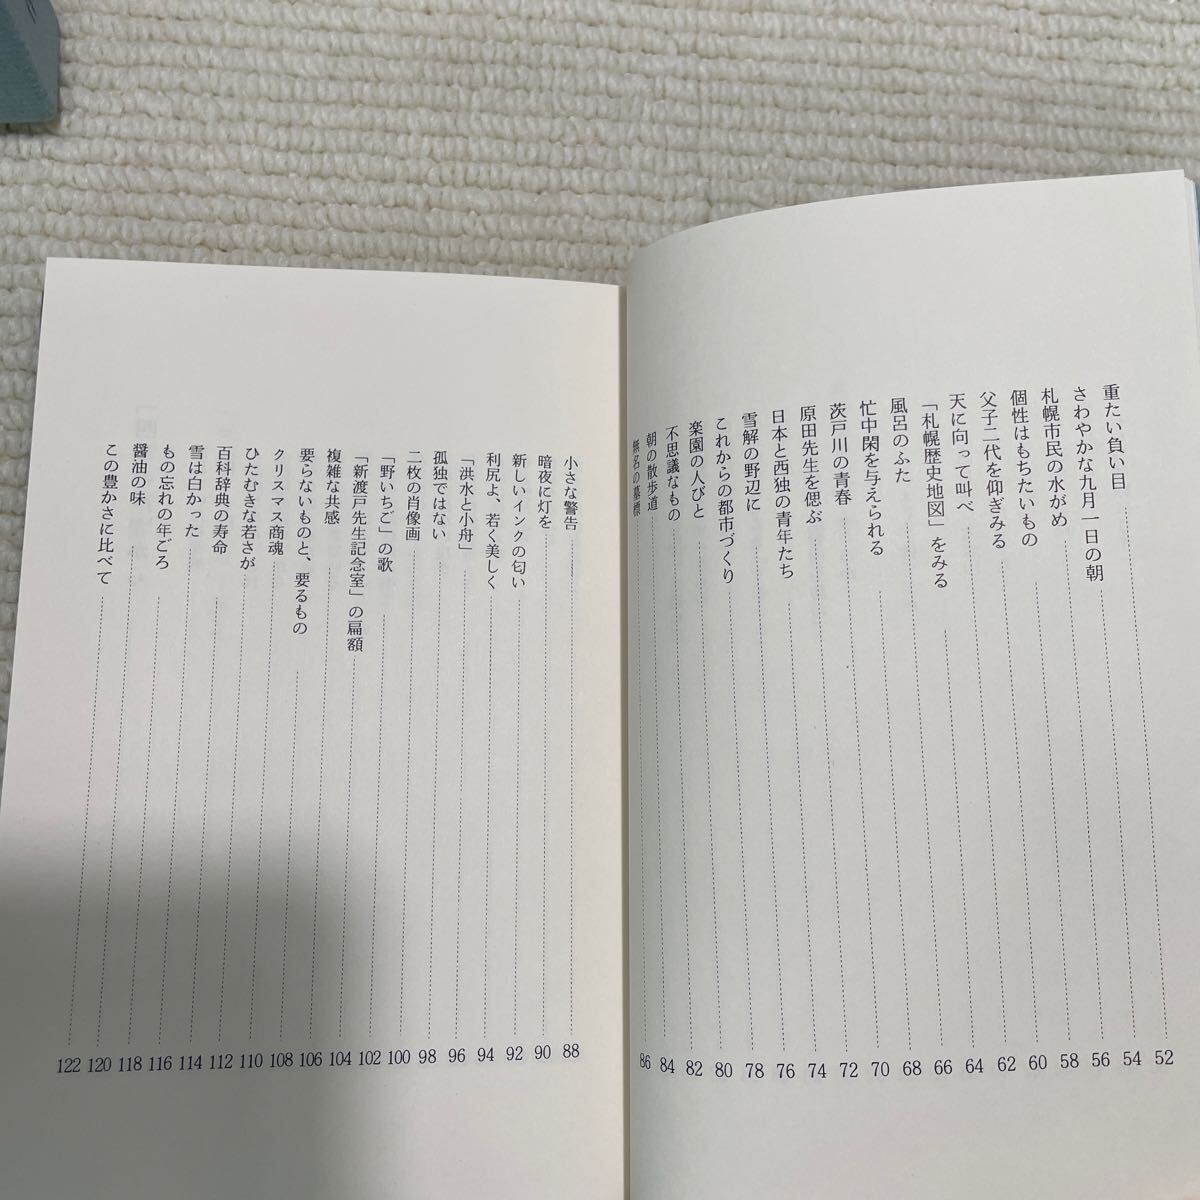 重たい負い目 52
さわやかな九月一日の朝 54
札幌市民の水がめ 56
個性はもちたいもの 58
父子二代を仰ぎみる 60
天に向って叫べ 62
「札幌歴史地図」をみる 64
風呂のふた 66
忙中閑を与えられる 68
茨戸川の青春 70
原田先生を偲ぶ 72
日本と西独の青年たち 74
雪解の野辺に 76
これからの都市づくり 78
楽園の人びと 80
不思議なもの 82
朝の散歩道 84
無名の墓標 86
小さな警告 88
暗夜に灯を 90
新しいインクの匂い 92
利尻よ、若く美しく 94
「洪水と小舟」 96
孤独ではない 98
二枚の肖像画 100
「野いちご」の歌 102
「新渡戸先生記念室」の扁額 104
複雑な共感 106
要らないものと、要るもの 108
クリスマス商魂 110
ひたむきな若さが 112
百科辞典の寿命 114
雪は白かった 116
もの忘れの年ごろ 118
醤油の味 120
この豊かさに比べて 122